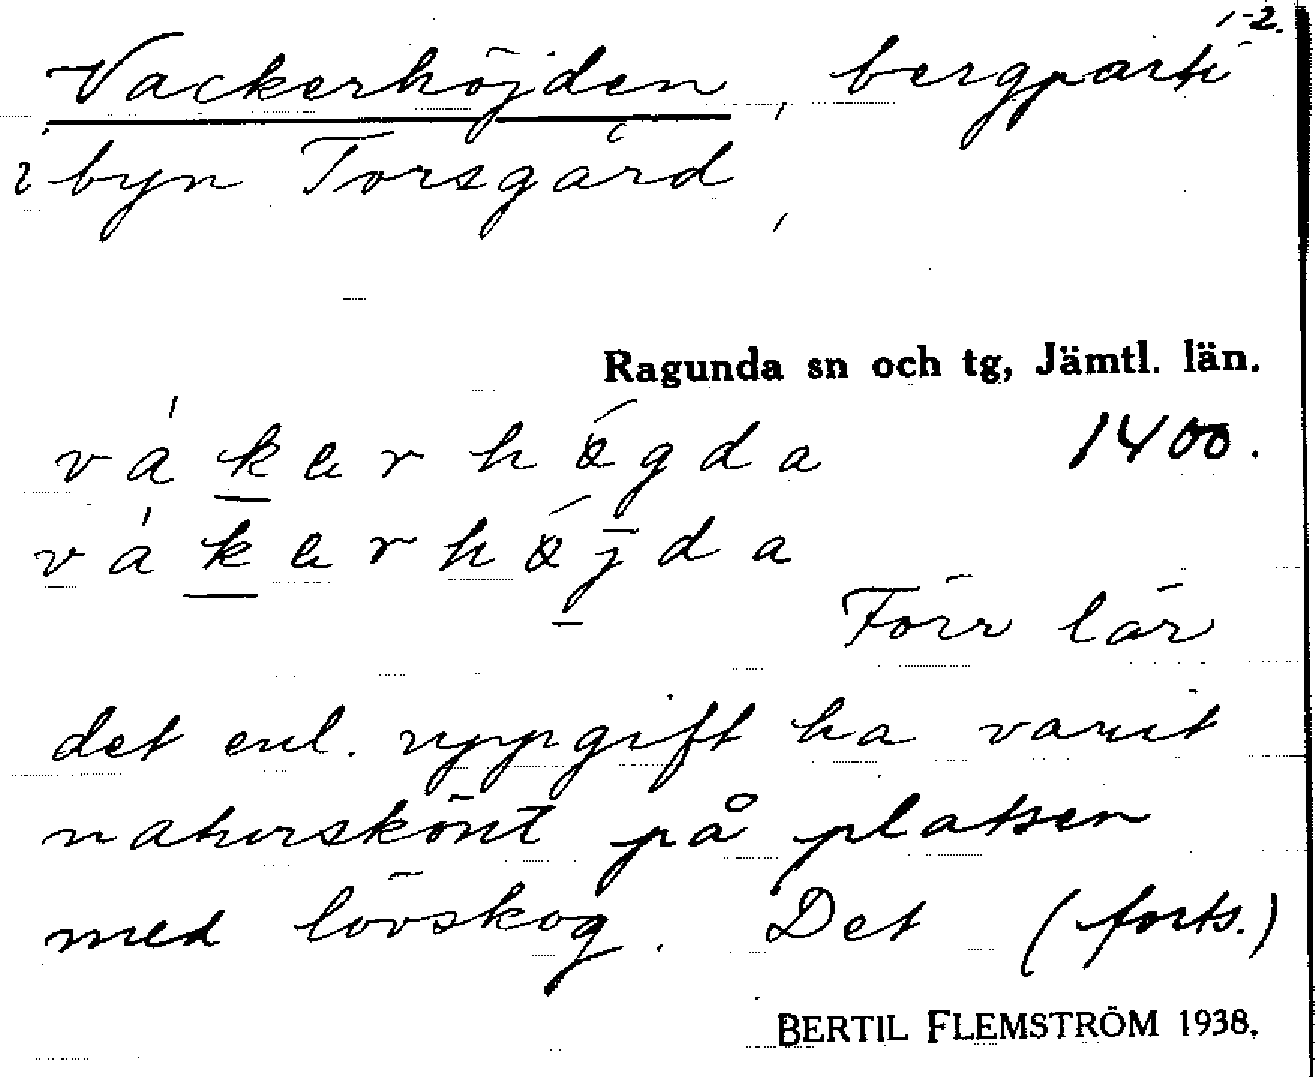 1-2.
Vackerhöjden, bergparti
i byn Torsgård,
Ragunda sn och tg, Jämtl. län.
våkerhögda 1400.
våkerhöjda
Förr lär
det enl. uppgift ha varit
naturskönt på platsen
med lövskog. Det (forts.)
BERTIL FLEMSTRÖM 1938.